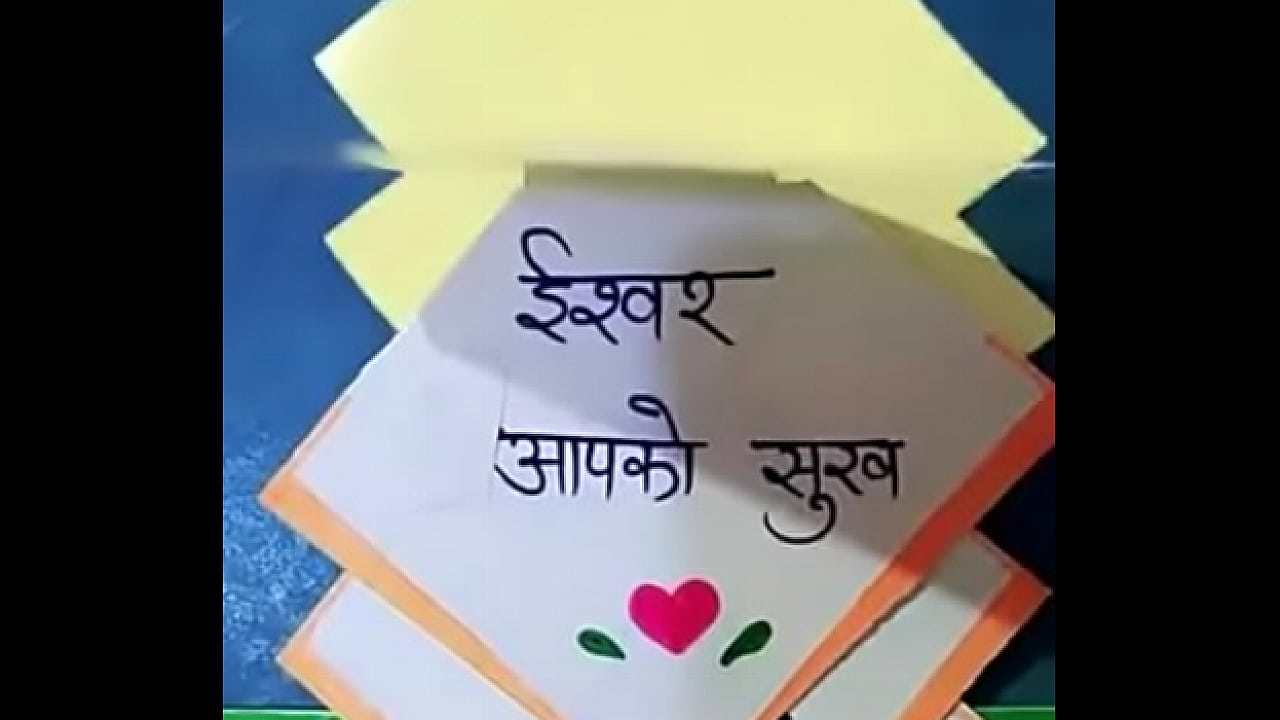 ईश्वर
आपको सुख